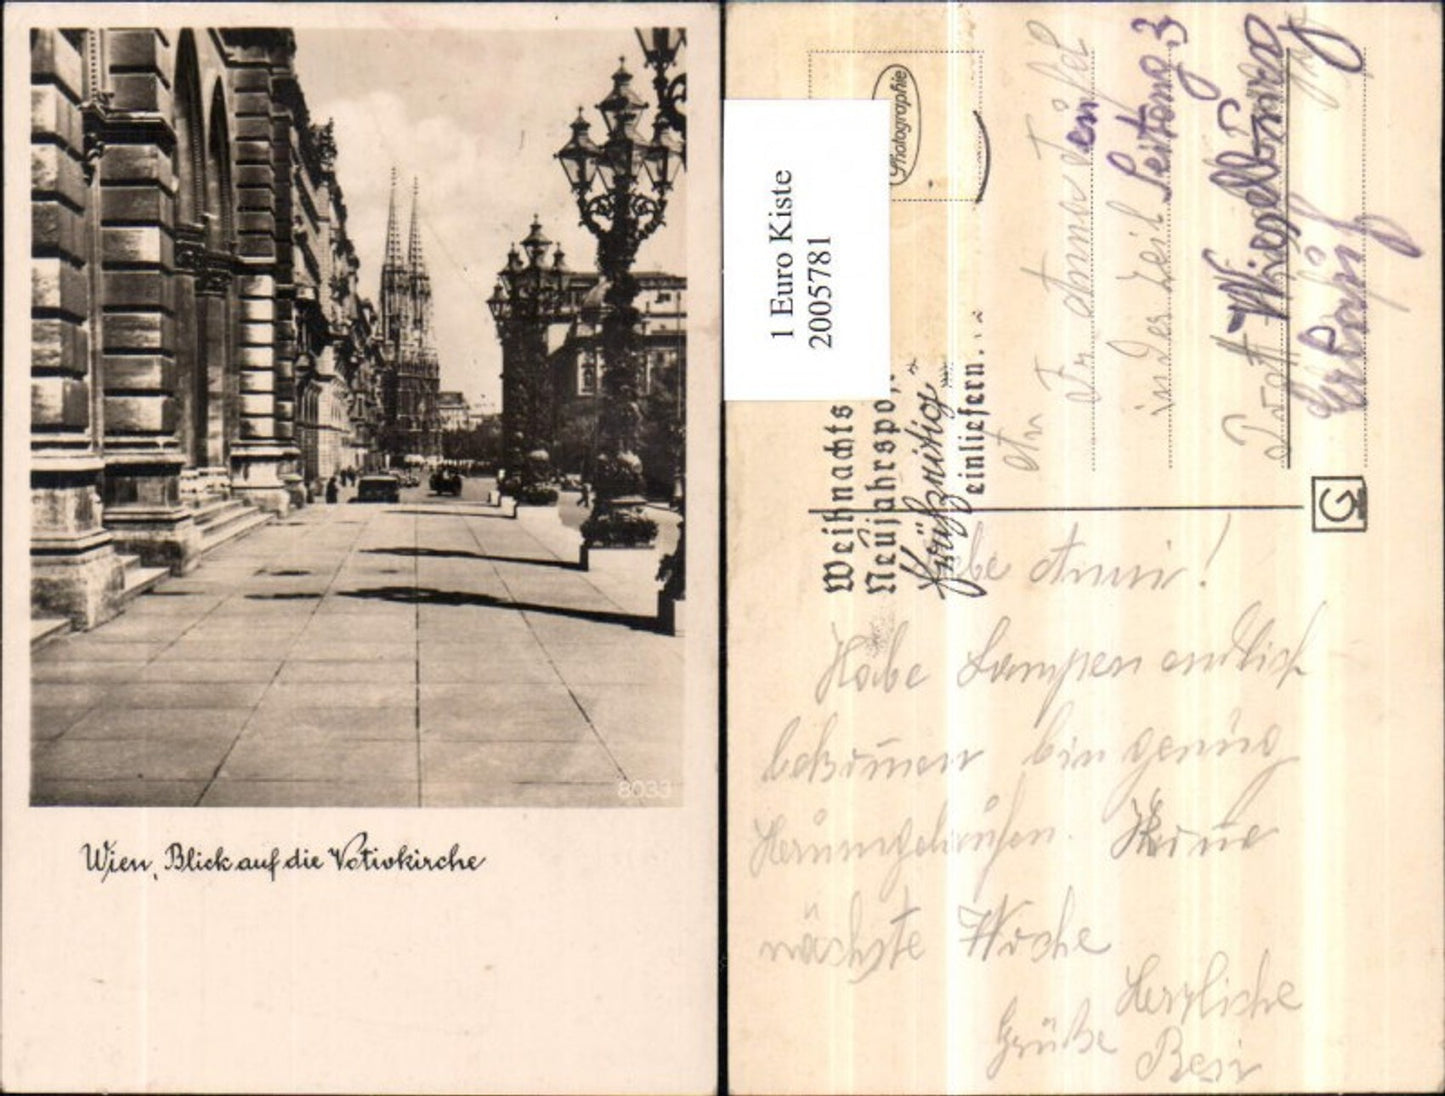 8033
Wien, Blick auf die Votivkirche
1 Euro Kiste
2005781
Photographie
Weihnachts
Neujahrspo
frühzeitig
einliefern.
An
Fr Anna
in der zeit Leitong 3
Post Wieselburg
G
Liebe Anni!
Habe Lampen endlich
bekommen bin genug
Herumgelaufen. Kome
nächste Woche
Herzliche
Grüße
Resi